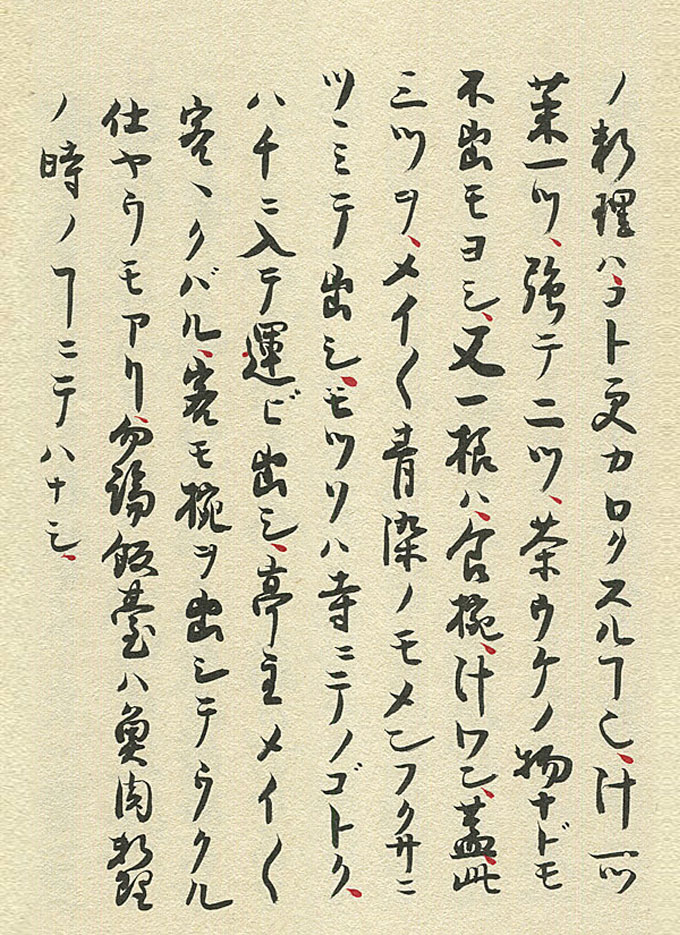 ノ料理ハ、コト更カロクスルヿ也、汁一ツ
菜一ツ、強テ二ツ、茶ウケノ物ナドモ
不出モヨシ、又一様ハ、食椀、汁ワン、蓋、此
三ツヲ、メイ〱青染ノモメンフクサニ
ツヽミテ出シ、モツソハ寺ニテノゴトク、
ハチニ入テ運ビ出シ、亭主メイ〱
客ヘクバル、客モ椀ヲ出シテウクル
仕ヤウモアリ、勿論飯臺ハ魚肉料理
ノ時ノヿニテハナシ、